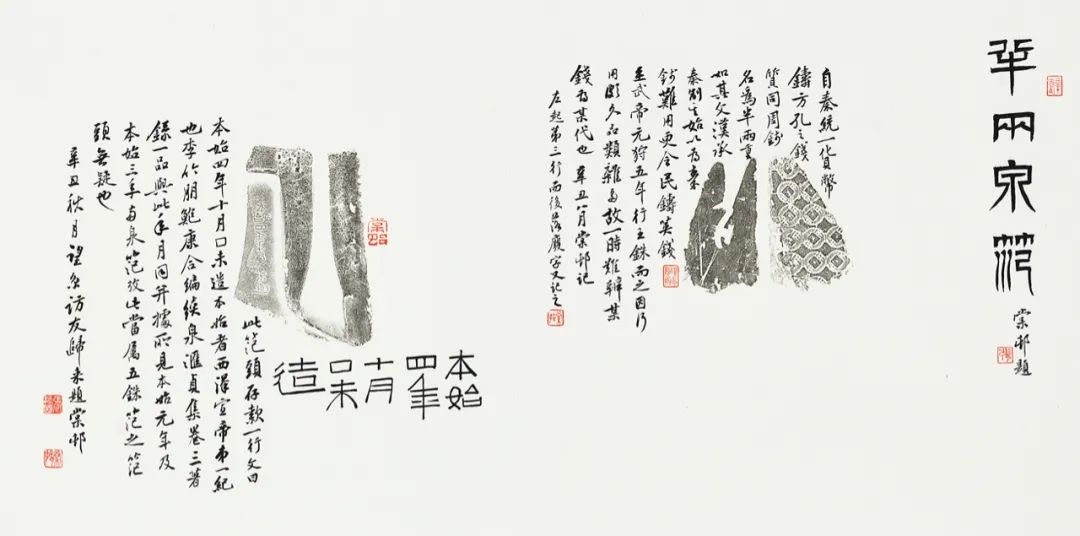 半兩泉范
棠邨題
自秦統一化貨幣
鑄方孔之錢
質同周
名爲半兩重
如其文漢承
秦制之始以爲秦
錢難用更令民鑄莢錢
至武帝元狩五年行五銖而之因行
用頗久品類雜多故一時難辨某
錢爲某代也 辛丑八月棠邨記
左起第三行而後落廢字又記之
本始
四年
十月
口未
造
此范頭存款一行文曰
本始四年十月口未造本始者西漢宣帝第一紀
也李竹朋鮑康合編續泉匯貞集卷三著
錄一品與此年月同并據所見本始元年及
本始三年泉范攷此當屬五銖范之范
頭無疑也
辛丑秋月望訪友歸来題棠邨